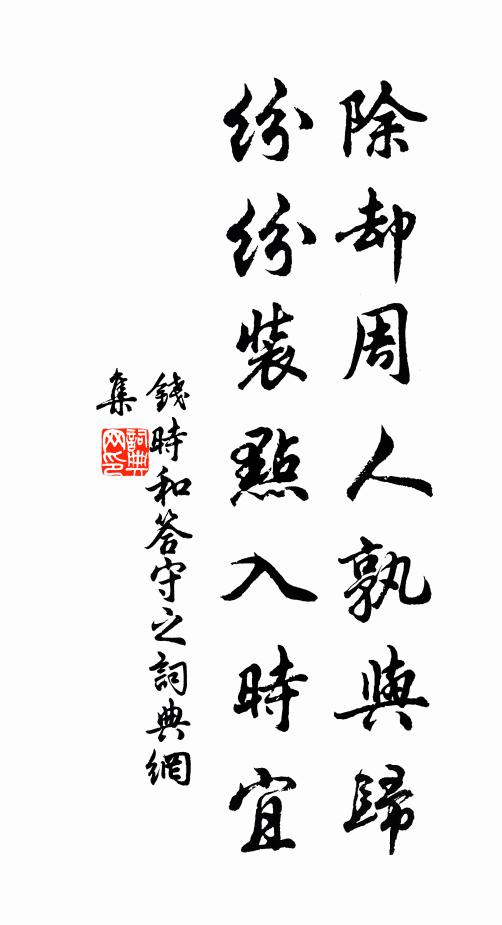 除却周人孰與歸
紛紛裝點入時宜
錢時和答守之詞典網
集
詞典网印